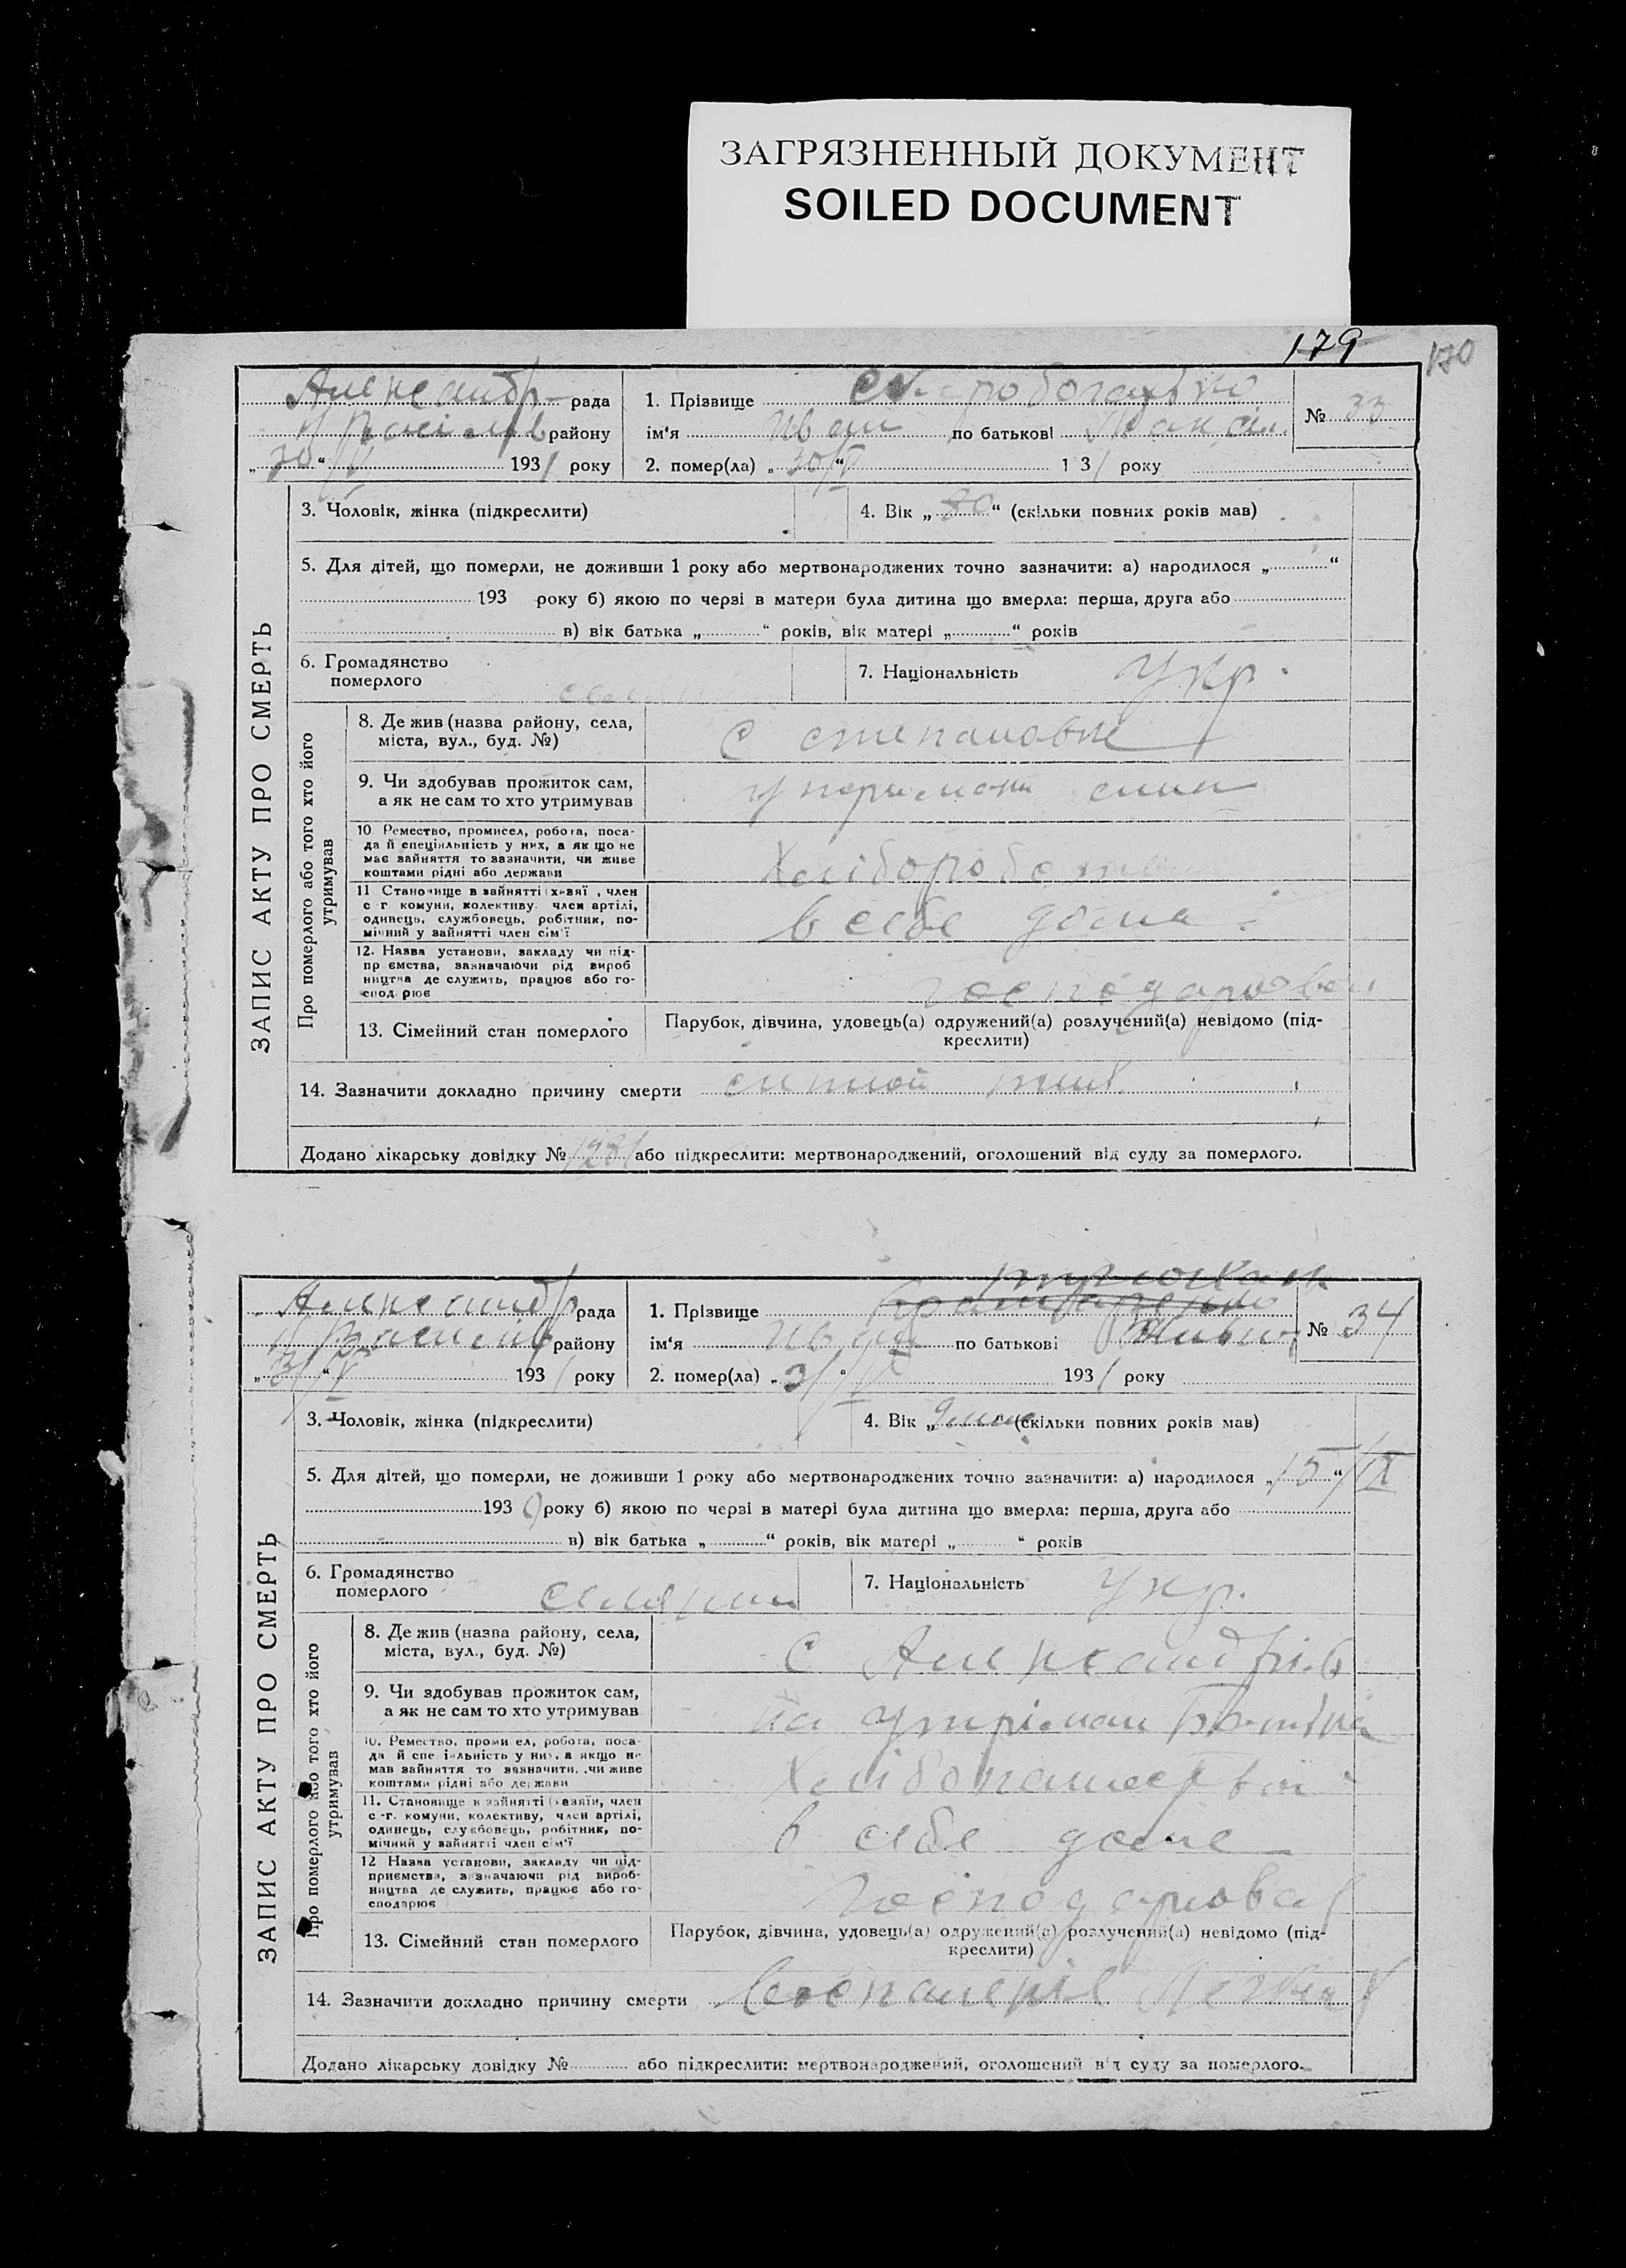 ЗАГРЯЗНЕННЫЙ ДОКУМЕНТ
SOILED DOCUMENT
179
170
Александр рада
району
„30“ V 1931 року
1. Прізвище
ім'я Иван по батькові Максим.
№ 33
2. помер(ла) „30/V“ 1 3/ року
ЗАПИС АКТУ ПРО СМЕРТЬ
3. Чоловік, жінка (підкреслити)
4. Вік „80“ (скільки повних років мав)
5. Для дітей, що померли, не доживши 1 року або мертвонароджених точно зазначити: а) народилося „ “
193 року б) якою по черзі в матери була дитина що вмерла: перша, друга або
в) вік батька „ “ років, вік матері „ “ років
6. Громадянство
померлого
7. Національність Укр.
Про померлого або того хто його
утримував
8. Де жив (назва району, села,
міста, вул., буд. №)
с степановке
9. Чи здобував прожиток сам,
а як не сам то хто утримував
10 Ремество, промисел, робота, поса-
да й спеціяльність у них, а як що не
має зайняття то зазначити, чи живе
коштами рідні або держави
11 Становище в зайнятті (хазяї , член
с г комуни, колективу член артілі,
одинець, службовець, робітник, по-
мічний у зайнятті член сім'ї
в себе дома
12. Назва установи, закладу чи під-
пр ємства, зазначаючи рід вироб
ництва де служить, працює або го-
спод рює
господарював
13. Сімейний стан померлого
Парубок, дівчина, удовець(а) одружений(а) розлучений(а) невідомо (під-
креслити)
14. Зазначити докладно причину смерти
Додано лікарську довідку № або підкреслити: мертвонароджений, оголошений від суду за померлого.
Александр рада
району
„31“ V 1931 року
1. Прізвище
ім'я Иван по батькові
№ 34
2. помер(ла) „31/V“ 1931 року
ЗАПИС АКТУ ПРО СМЕРТЬ
3. Чоловік, жінка (підкреслити)
4. Вік „ “ (скільки повних років мав)
5. Для дітей, що померли, не доживши 1 року або мертвонароджених точно зазначити: а) народилося „15“/IX
1930 року б) якою по черзі в матері була дитина що вмерла: перша, друга або
в) вік батька „ “ років, вік матері „ “ років
6. Громадянство
померлого
селянин
7. Національність Укр.
Про померлого або того хто його
утримував
8. Де жив (назва району, села,
міста, вул., буд. №)
с Александрів
9. Чи здобував прожиток сам,
а як не сам то хто утримував
на утріман
10. Ремество, проми ел, робота, поса-
да й спе іяльність у них, а якщо не
мав зайняття то зазначити, чи живе
коштами рідні або держави
11. Становище в зайнятті (хазяїн, член
с -г. комуни, колективу, член артілі,
одинець, службовець, робітник, по-
мічний у зайнятті член сім'ї
в себе доме
12 Назва установи, закладу чи під-
приємства, зазначаючи рід вироб-
ництва де служить, працює або го-
сподарює
господарював
13. Сімейний стан померлого
Парубок, дівчина, удовець(а) одружений(а) розлучений(а) невідомо (під-
креслити)
14. Зазначити докладно причину смерти
Додано лікарську довідку № або підкреслити: мертвонароджений, оголошений від суду за померлого.